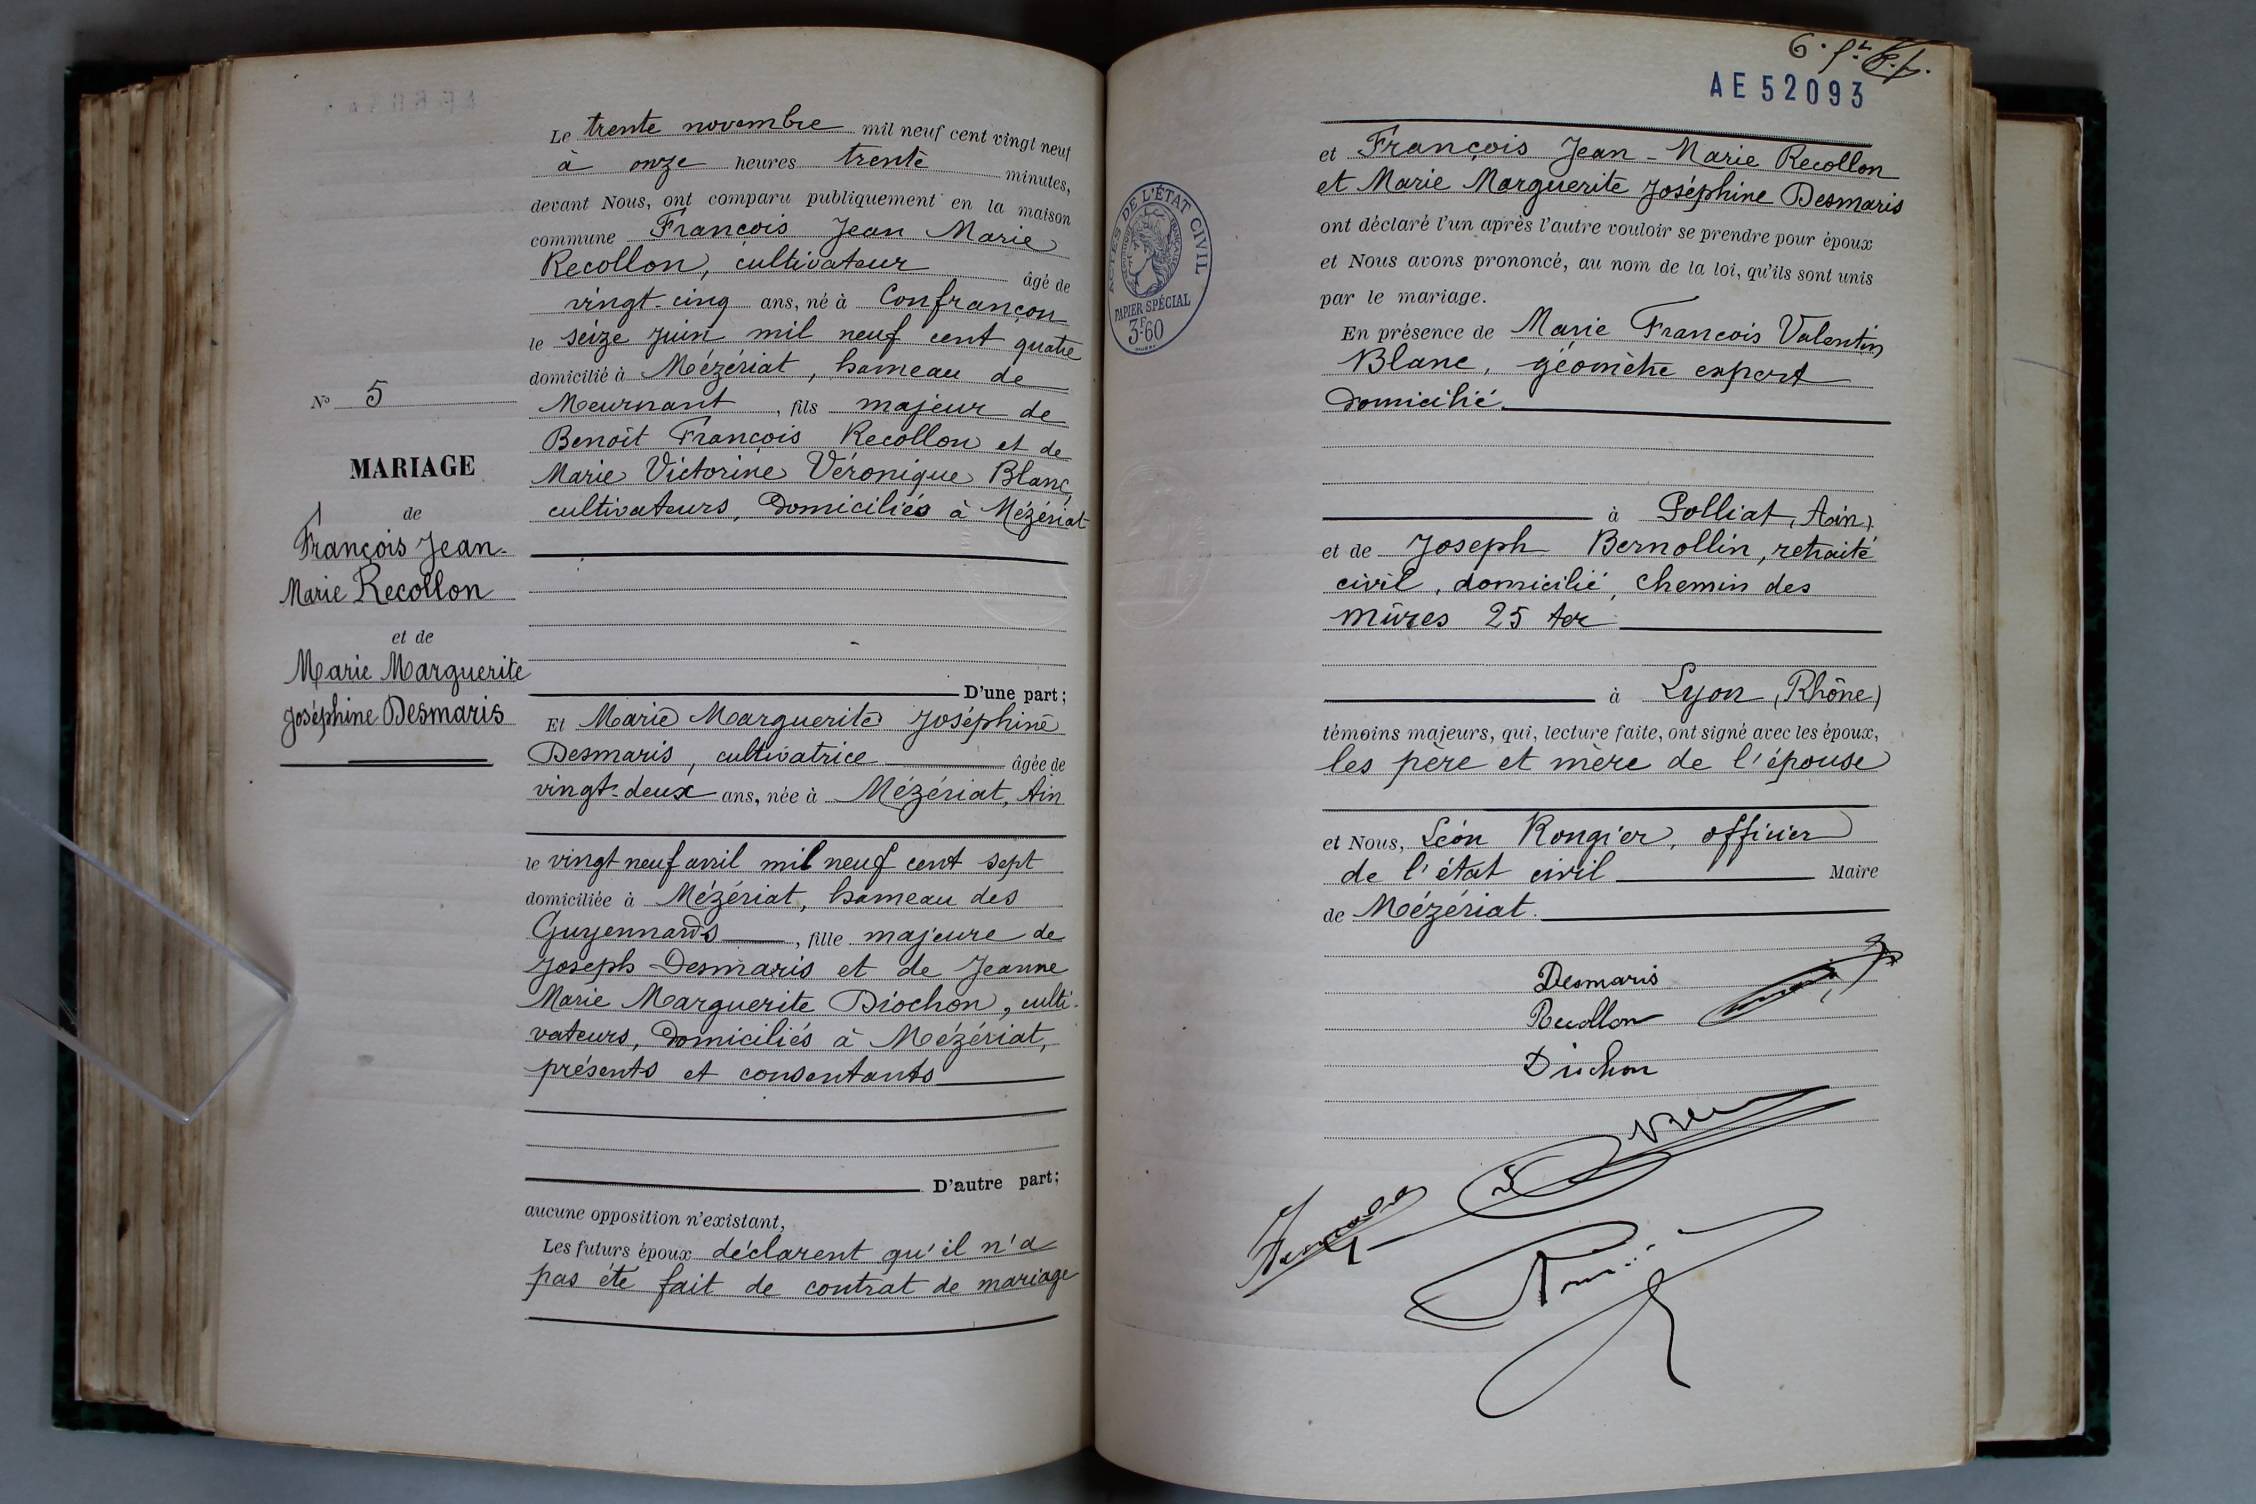 Le trente novembre mil neuf cent vingt neuf
à onze heures trente minutes,
devant Nous, ont comparu publiquement en la maison
commune François Jean Marie
Recollon, cultivateur âgé de
vingt-cinq ans, né à Confrançon
le seize juin mil neuf cent quatre
domicilié à Mézériat, hameau de
Meurnant, fils majeur de
Benoit François Recollon et de
Marie Victorine Véronique Blanc
cultivateurs, domiciliés à Mézériat
N° 5
MARIAGE
de
François Jean-
Marie Recollon
et de
Marie Marguerite
Joséphine Desmaris
D'une part;
Et Marie Marguerite Joséphine
Desmaris, cultivatrice âgée de
vingt-deux ans, née à Mézériat, Ain
le vingt neuf avril mil neuf cent sept
domiciliée à Mézériat, hameau des
Guyennards, fille majeure de
Joseph Desmaris et de Jeanne
Marie Marguerite Diochon, culti-
vateurs, domiciliés à Mézériat,
présents et consentants
D'autre part;
aucune opposition n'existant,
Les futurs époux déclarent qu'il n'a
pas été fait de contrat de mariage
AE 52093
et François Jean-Marie Recollon
et Marie Marguerite Joséphine Desmaris
ont déclaré l'un après l'autre vouloir se prendre pour époux
et Nous avons prononcé, au nom de la loi, qu'ils sont unis
par le mariage.
ACTES DE L'ÉTAT CIVIL
PAPIER SPÉCIAL
3F60
En présence de Marie François Valentin
Blanc, géomètre expert
domicilié
à Polliat, (Ain)
et de Joseph Bernollin, retraité
civil, domicilié, chemin des
mûres 25 ter
à Lyon, (Rhône)
témoins majeurs, qui, lecture faite, ont signé avec les époux,
les père et mère de l'épouse
et Nous, Léon Rongier, officier
de l'état civil Maire
de Mézériat.
Desmaris
Recollon
Diochon